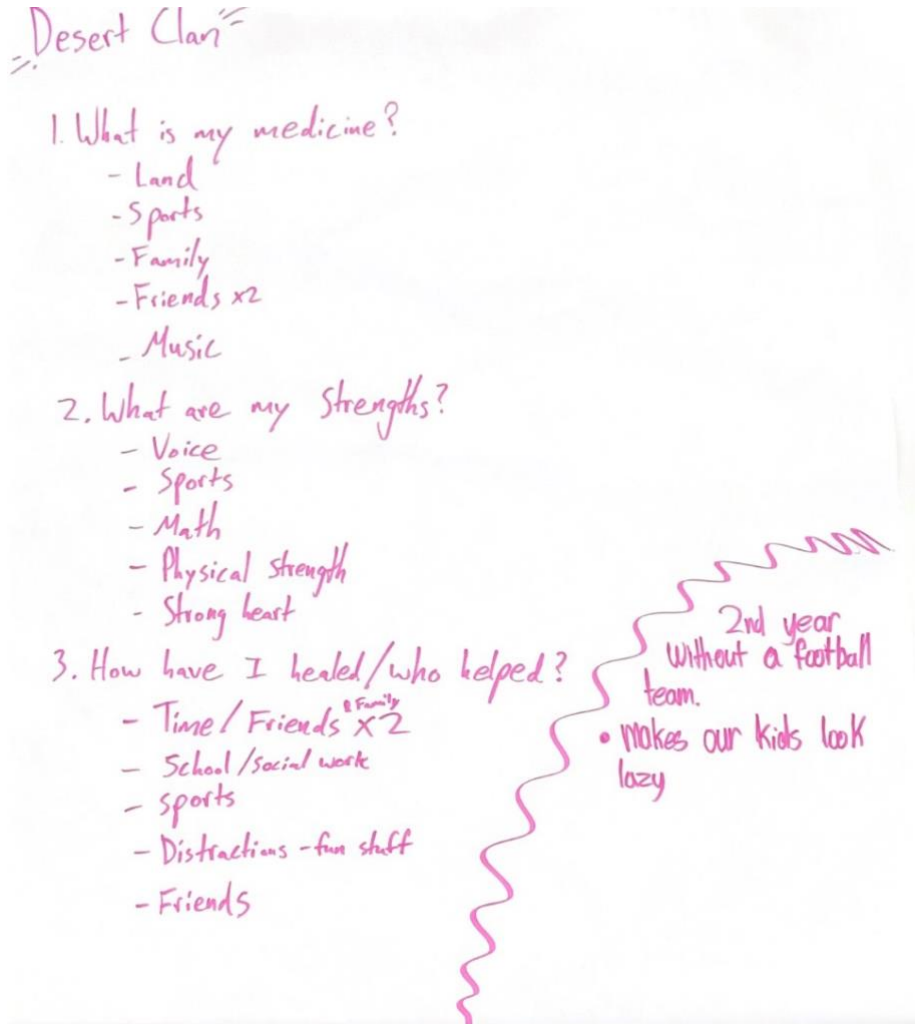 Desert Clan
1. What is my medicine?
- Land
- Sports
- Family
- Friends x2
- Music
2. What are my strengths?
- Voice
- Sports
- Math
- Physical strength
- Strong heart
3. How have I healed/who helped?
- Time / Friends & Family x2
- School/social work
- sports
- Distractions - fun stuff
- Friends
2nd year
without a football
team.
• makes our kids look
lazy